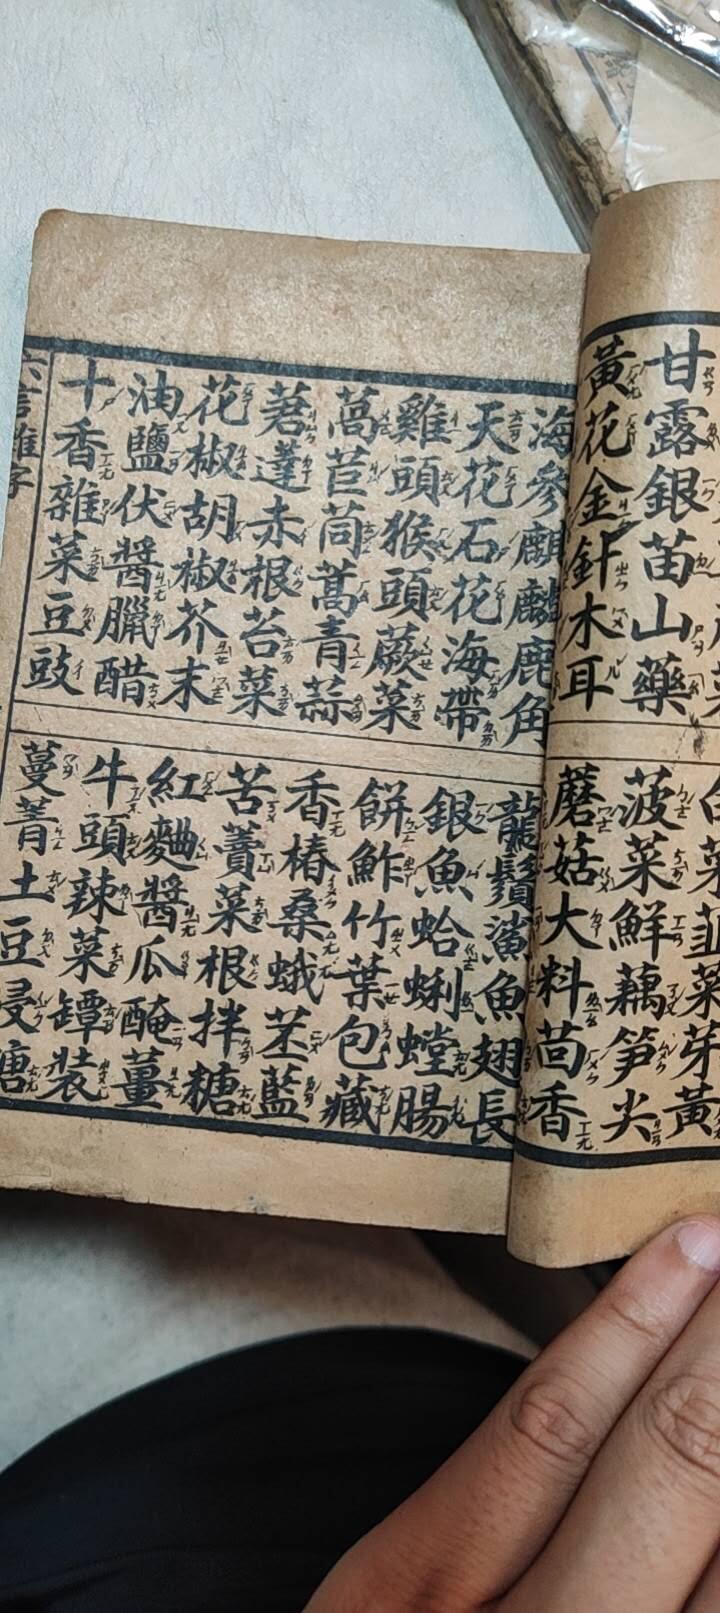 甘露銀苗山藥
菠菜鮮藕笋尖
黃花金針木耳
蘑菇大料茴香
海參麒麟鹿角
龍鬚鯊魚翅長
天花石花海帶
銀魚蛤蜊螳腸
雞頭猴頭蕨菜
餅鮓竹葉包藏
萵苣茼蒿青蒜
香椿桑蛾苤藍
莙薘赤根苔菜
苦藚菜根拌糖
花椒胡椒芥末
紅麯醬瓜醃薑
油鹽伏醬臘醋
牛頭辣菜罈裝
十香雜菜豆豉
蔓菁土豆浸糖
六言雜字